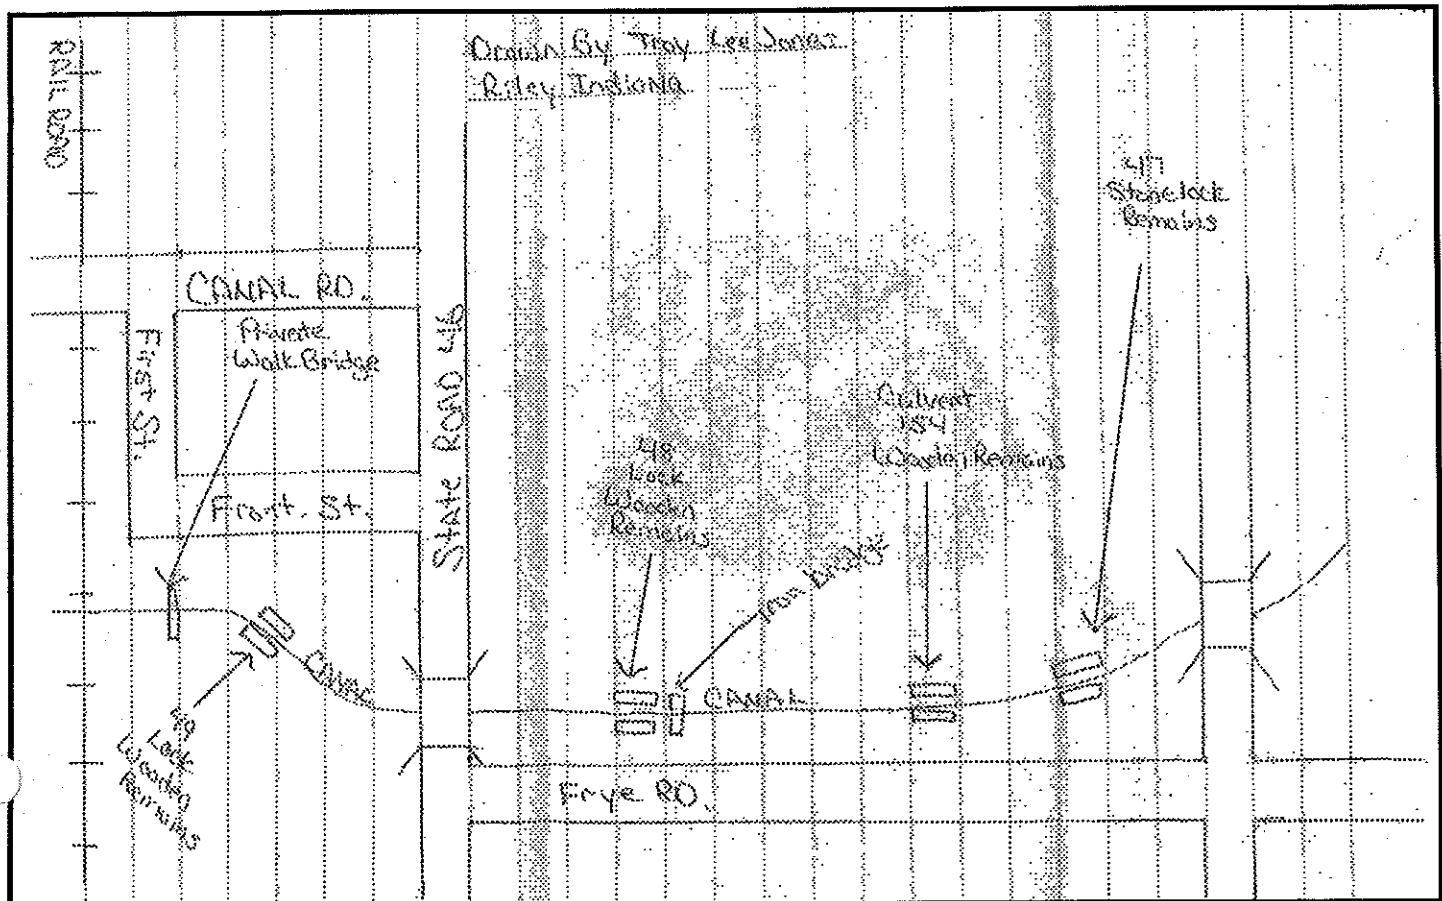 Drawn By Troy Lee Jones
Riley Indiana
RAIL ROAD
47
Stonelock
Remains
CANAL RD.
Private
Walk Bridge
First St.
STATE ROAD 46
Culvert
154
Wooden Remains
48
Lock
Wooden
Remains
Front. St.
Iron Bridge
CANAL
CANAL
49
Lock
Wooden
Remains
Frye RD.